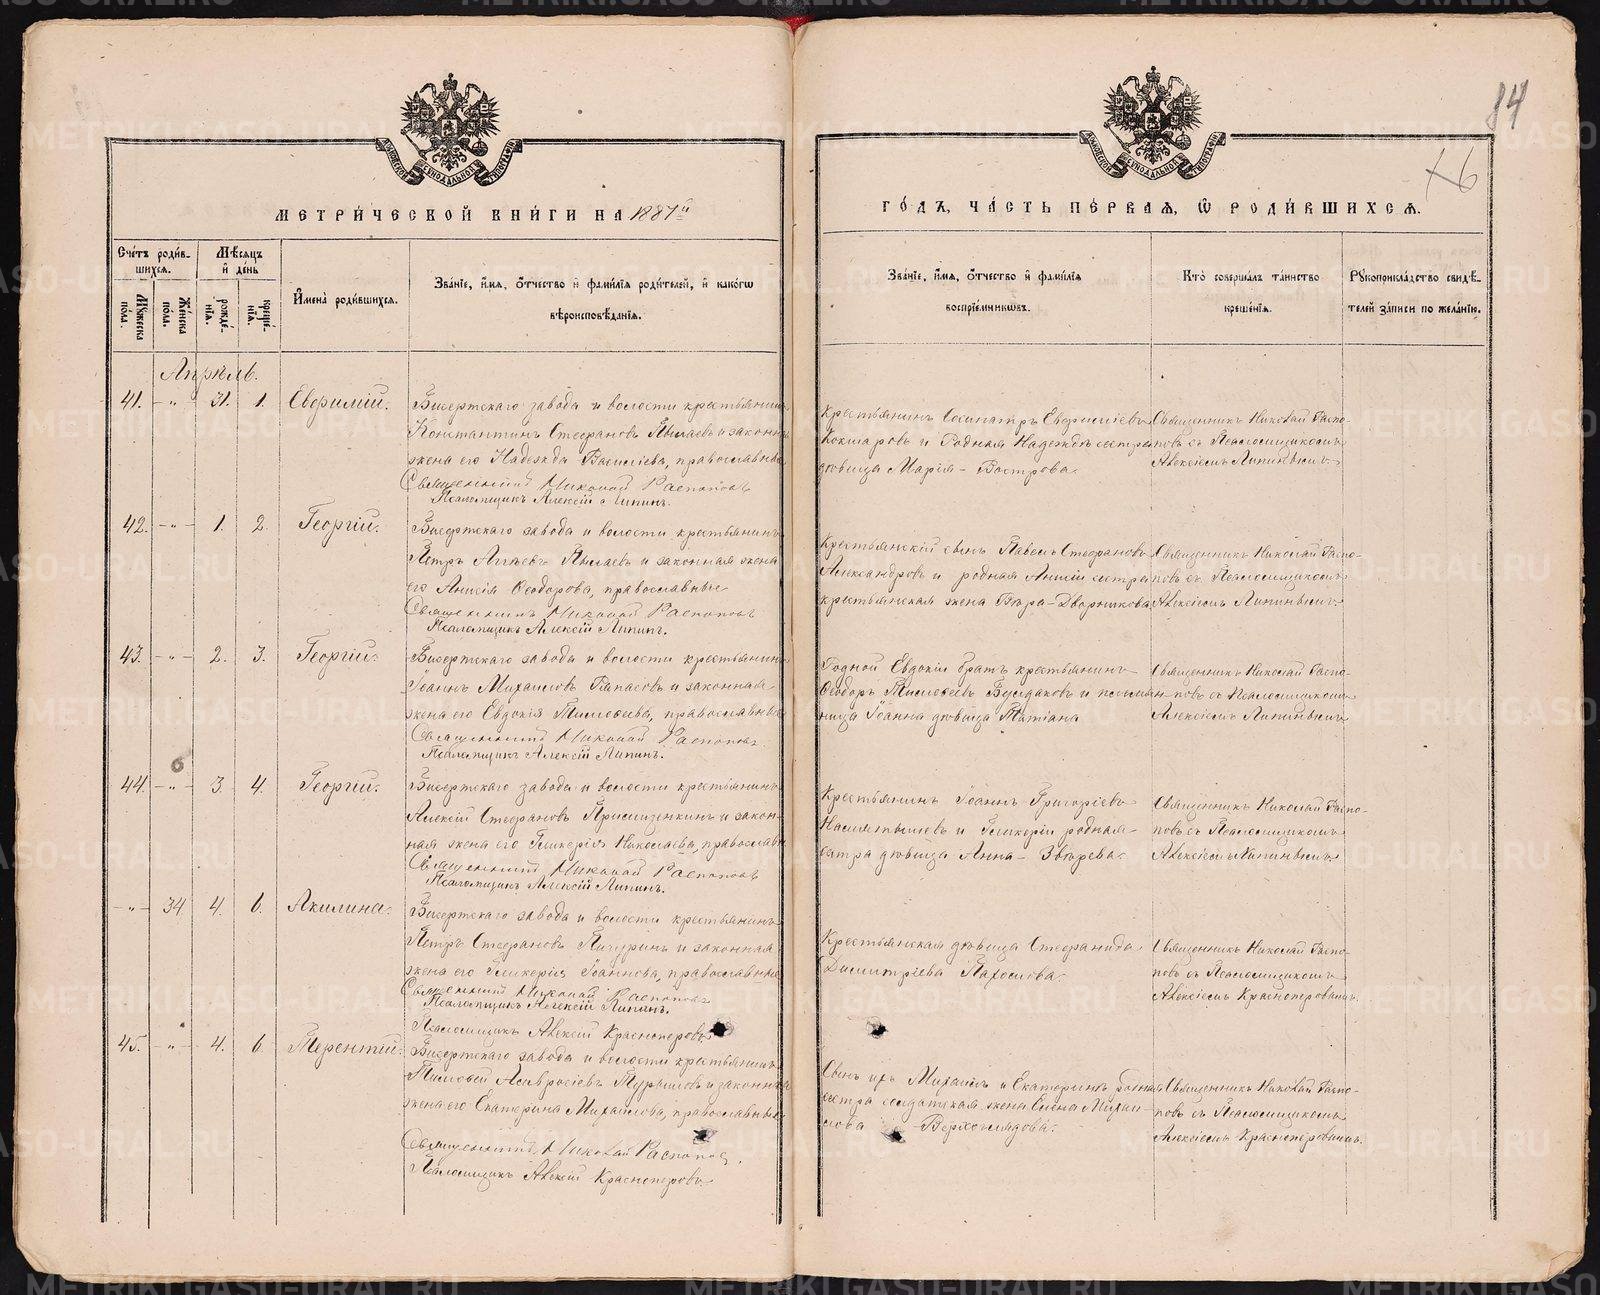 84
76
МЕТРИЧЕСКОЙ КНИГИ НА 1887й
ГОДЪ, ЧАСТЬ ПЕРВАЯ, Ѿ РОДИВШИХСЯ.
Счетъ родившихся.
Мужеска пола.
Женска пола.
Мѣсяцъ и день
рожденія.
крещенія.
Имена родившихся.
Званіе, имя, отчество и фамилія родителей, и какогѡ
вѣроисповѣданія.
Званіе, имя, отчество и фамилія
воспріемникѡвъ.
Кто совершалъ таинство
крещенія.
Рукоприкладство свидѣ-
телей записи по желанію.
Апрѣль.
41. - „ - 31. 1. Евфимій.
Бисертскаго завода и волости крестьянинъ
Константинъ Стефановъ Пылаевъ и законная
жена его Надежда Васильева, православные
Священникъ Николай Распоповъ
Псаломщикъ Алексій Липинъ.
Крестьянинъ Сосипатръ Евфиміевъ
Кокшаровъ и родная Надеждѣ сестра
дѣвица Марія Вострова.
Священникъ Николай Распо-
повъ съ Псаломщикомъ
Алексіемъ Липинымъ
42. - „ - 1. 2. Георгій.
Бисертскаго завода и волости крестьянинъ
Петръ Пылаевъ и законная жена
его Анисія Ѳеодорова, православные
Священникъ Николай Распоповъ
Псаломщикъ Алексій Липинъ.
Крестьянскій сынъ Павелъ Стефановъ
Александровъ и родная Анисіи сестра
крестьянская жена Вѣра Дворникова
Священникъ Николай Распо-
повъ съ Псаломщикомъ
Алексіемъ Липинымъ
43. - „ - 2. 3. Георгій.
Бисертскаго завода и волости крестьянинъ
Іоаннъ Михаиловъ и законная
жена его Евдокія Тимоѳеева, православные
Священникъ Николай Распоповъ
Псаломщикъ Алексій Липинъ.
Родной Евдокіи братъ крестьянинъ
Ѳеодоръ Тимоѳеевъ Булдаковъ и племян-
ница Іоанна дѣвица Татіана
Священникъ Николай Распо-
повъ съ Псаломщикомъ
Алексіемъ Липинымъ
6
44. - „ - 3. 4. Георгій.
Бисертскаго завода и волости крестьянинъ
Алексій Стефановъ и закон-
ная жена его Гликерія Николаева, православные
Священникъ Николай Распоповъ
Псаломщикъ Алексій Липинъ.
Крестьянинъ Іоаннъ Григоріевъ
и Гликеріи родная
сестра дѣвица Анна Звѣрева
Священникъ Николай Распо-
повъ съ Псаломщикомъ
Алексіемъ Липинымъ
- „ - 34 4. 6. Акилина.
Бисертскаго завода и волости крестьянинъ
Петръ Стефановъ Пичугинъ и законная
жена его Гликерія Іоаннова, православные
Священникъ Николай Распоповъ
Псаломщикъ Алексій Липинъ.
Псаломщикъ Алексій Красноперовъ
Крестьянская дѣвица Стефанида
Димитріева Пахомова
Священникъ Николай Распо-
повъ съ Псаломщикомъ
Алексіемъ Красноперовымъ.
45. „ - 4. 6. Терентій.
Бисертскаго завода и волости крестьянинъ
Тимоѳей Амвросіевъ и законная
жена его Екатерина Михаилова, православные
Священникъ Николай Распоповъ.
Псаломщикъ Алексій Красноперовъ
Сынъ ихъ Михаилъ и Екатеринѣ родная
сестра солдатская жена Елена Михаи-
лова Верхоглядова.
Священникъ Николай Распо-
повъ съ Псаломщикомъ
Алексіемъ Красноперовымъ.